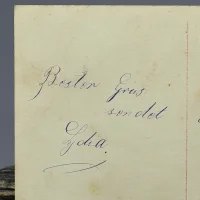 Bester Grus
sendet
Lydia.